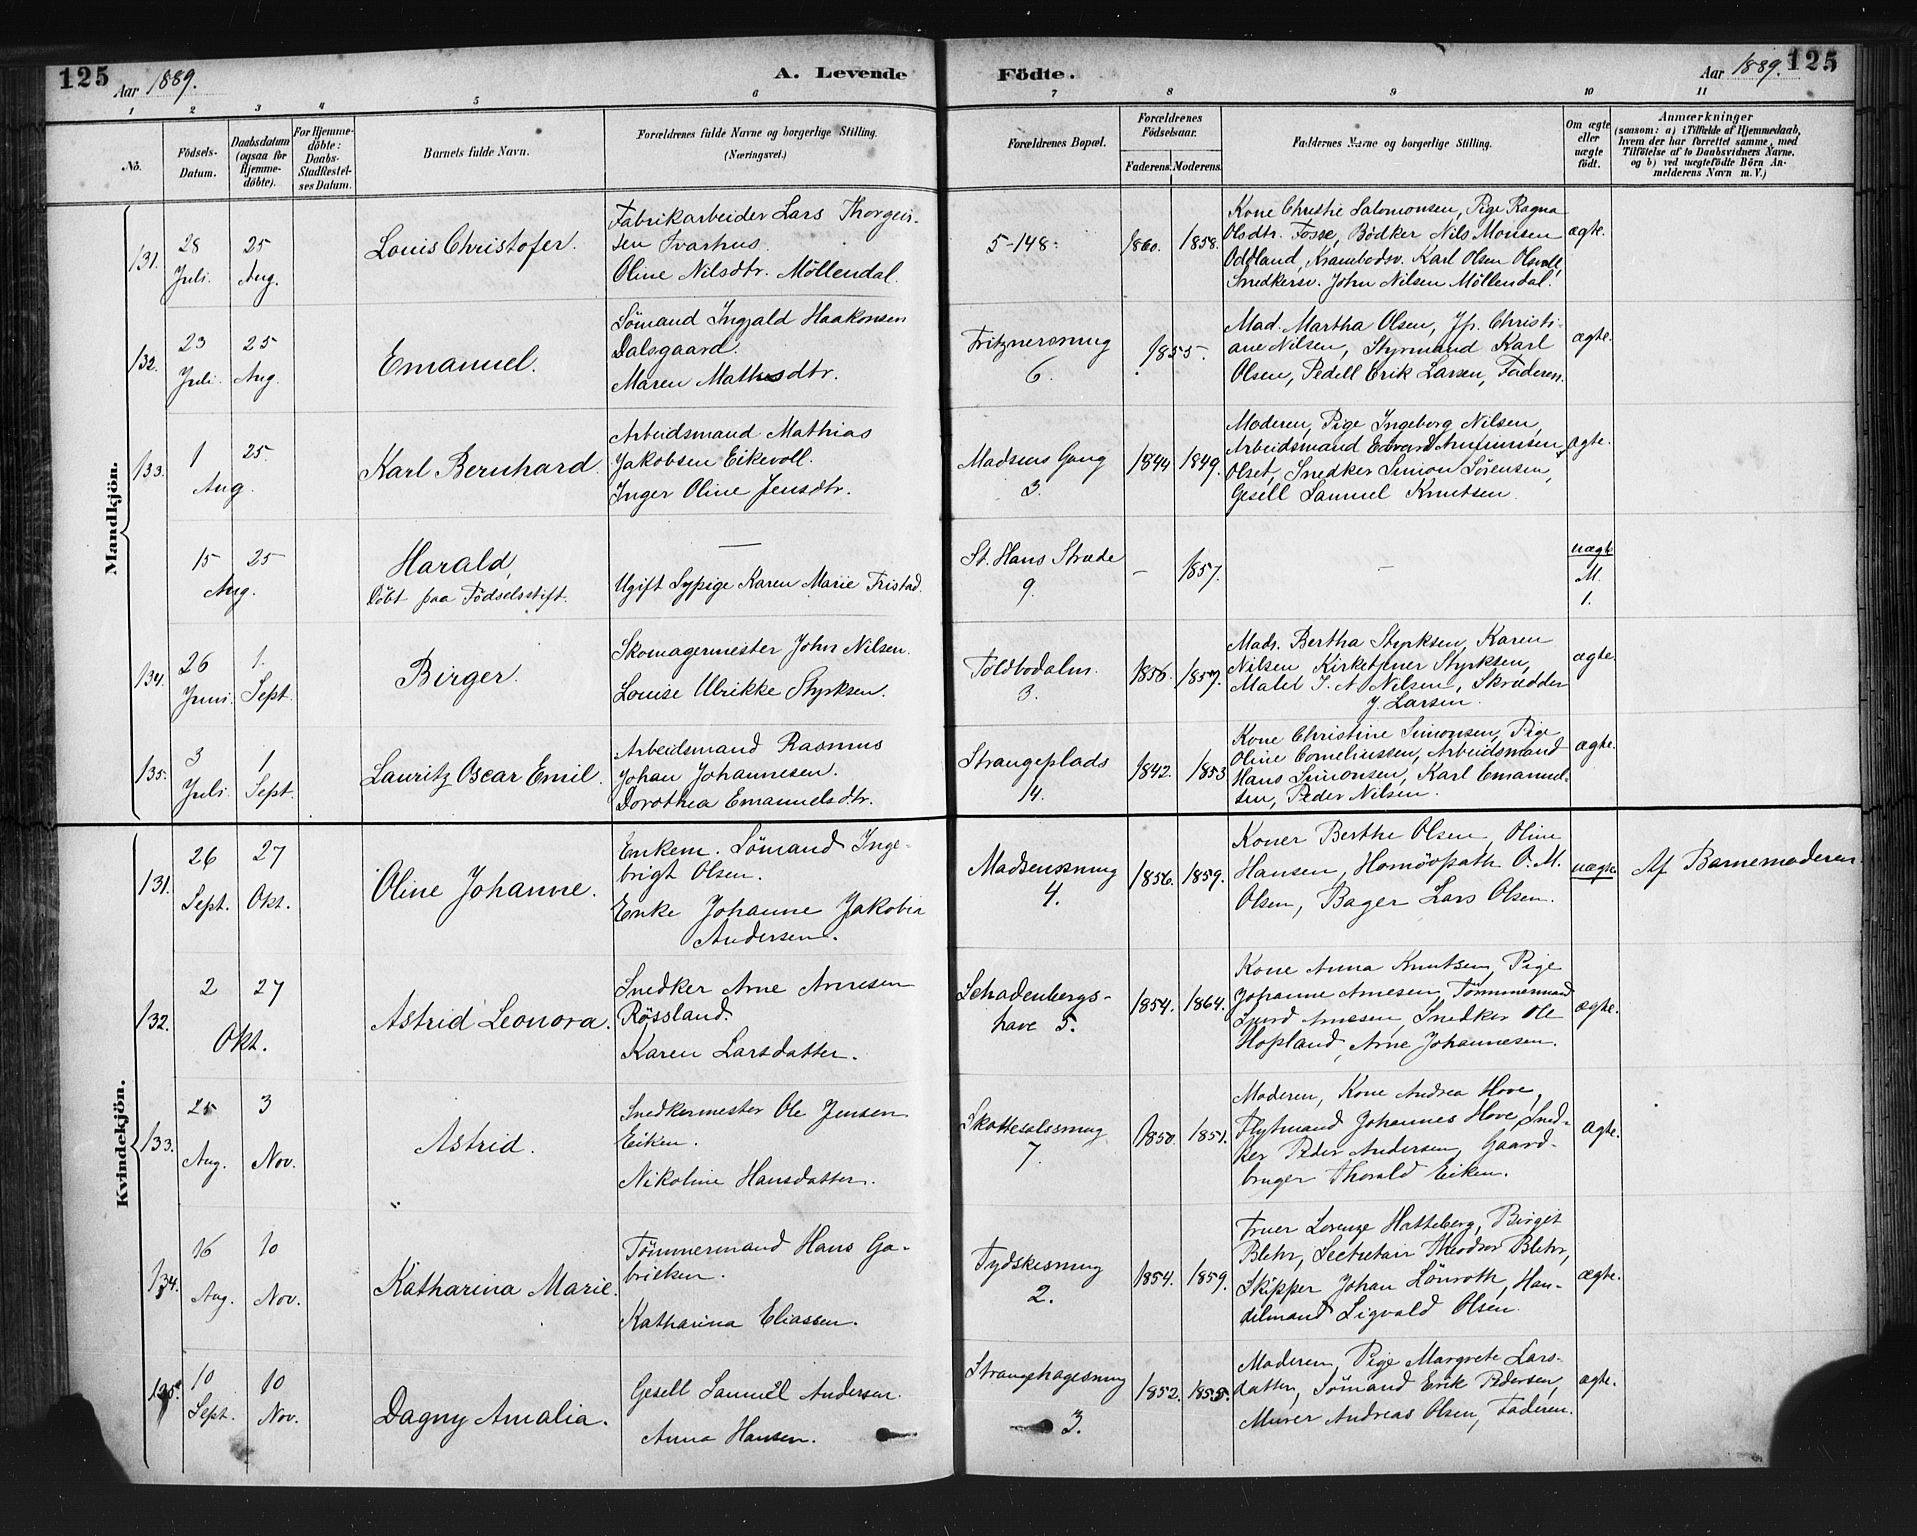 125
Aar 1889.
A. Levende
Födte.
Aar 1889.
125
1 2 3 4 5 6 7 8 9 10 11
No.
Födsels-
Datum.
Daabsdatum
(ogsaa for
Hjemme-
döbte).
For Hjemme-
döbte:
Daabs-
Stadfæstel-
ses Datum.
Barnets fulde Navn.
Forældrenes fulde Navne og borgerlige Stilling.
(Næringsvei.)
Forældrenes Bopæl.
Forældrenes
Födselsaar.
Faderens. Moderens.
Faddernes Navne og borgerlige Stilling.
Om ægte
eller
uægte
födt.
Anmærkninger
(saasom: a) i Tilfælde af Hjemmedaab,
hvem der har forrettet samme, med
Tilföielse af to Daabsvidners Navne,
og b) ved uægtefödte Börn An-
melderens Navn m. V.)
Mandkjön.
131.
28
Juli.
25
Aug.
Louis Christofer.
Fabrikarbeider Lars Thorgeir-
sen Ivarhus.
Oline Nilsdtr. Möllendal.
5-148.
1860. 1858.
Kone Christie Salomonsen, Pige Ragna
Olsdtr. Fosse, Bödker Nils Monsen
Oddland, Krambodsv. Karl Olsen Olsvoll,
Snedkersv. John Nilsen Möllendal.
ægte.
132.
23
Juli.
25
Aug.
Emanuel.
Sömand Ingjald Haakonsen
Dalsgaard.
Maren Mathisdtr.
Fritznersmug
6.
1855.
Mad. Martha Olsen, Jfr. Christi-
ane Nilsen, Styrmand Karl
Olsen, Pedell Erik Larsen, Faderen.
ægte.
133.
1
Aug.
25.
Karl Bernhard.
Arbeidsmand Mathias
Jakobsen Eikevoll.
Inger Oline Jensdtr.
Madsens Gang
3.
1844 1849.
Moderen, Pige Ingeborg Nilsen,
Arbeidsmand Edvard
Olset, Snedker Simon Sörensen,
Gesell Samuel Knutsen.
ægte.
15
Aug.
25
Harald,
Döbt paa Födselsstift.
—
Ugift Sypige Karen Marie Fristad.
St. Hans Stræde
9.
— 1857.
—
uægte
M.
1.
134.
26
Juni.
1.
Sept.
Birger.
Skomagermester John Nilsen.
Louise Ulrikke Styrksen.
Toldbodalm.
3.
1856. 1857.
Mads. Bertha Styrksen, Karen
Nilsen, Kirketjener Styrksen,
Maler J. A. Nilsen, Skrædder
J. Larsen.
ægte.
135.
3
Juli.
1
Sept.
Lauritz Oscar Emil.
Arbeidsmand Rasmus
Johan Johannesen.
Dorothea Emanuelsdtr.
Strangeplads
14.
1842. 1853
Kone Christine Simonsen, Pige
Oline Corneliussen, Arbeidsmand
Hans Simonsen, Karl Emanuel-
sen, Peder Nilsen.
ægte.
Kvindekjön.
131.
26
Sept.
27
Okt.
Oline Johanne.
Enkem. Sömand Inge-
brigt Olsen.
Enke Johanne Jakobia
Andersen.
Madsensmug
4.
1856. 1859.
Koner Berthe Olsen, Oline
Hansen, Homöopath O. M.
Olsen, Bager Lars Olsen.
uægte
Af Barnemoderen.
132.
2
Okt.
27
Astrid Leonora.
Snedker Arne Arnesen
Røssland.
Karen Larsdatter.
Schadenbergs-
have 5.
1854. 1864.
Kone Anna Knutsen, Pige
Johanne Arnesen, Tömmermand
Sjurd Arnesen, Snedker Ole
Hopland, Arne Johannesen.
ægte.
133.
25
Aug.
3
Nov.
Astrid.
Snedkermester Ole Jensen
Eiken.
Nikoline Hansdatter.
Skottesalssmug
7.
1850. 1851.
Moderen, Kone Andrea Hove,
Flytmand Johannes Hove, Sned-
ker Peder Andersen, Gaard-
bruger Thorald Eiken.
ægte.
134.
16
Aug.
10
Nov.
Katharina Marie.
Tömmermand Hans Ga-
brielsen.
Katharina Eliassen.
Tydskesmug
2.
1854. 1859.
Fruer Lorenze Hatteberg, Birgit
Blehr, Secretair Theodor Blehr,
Skipper Johan Lönroth, Han-
delsmand Sigvald Olsen.
ægte.
135.
10
Sept.
10
Nov.
Dagny Amalia.
Gesell Samuel Andersen.
Anna Hansen.
Strangehagesmug
3.
1852. 1855.
Moderen, Pige Margrete Lars-
datter, Sömand Erik Pedersen,
Murer Andreas Olsen, Faderen.
ægte.